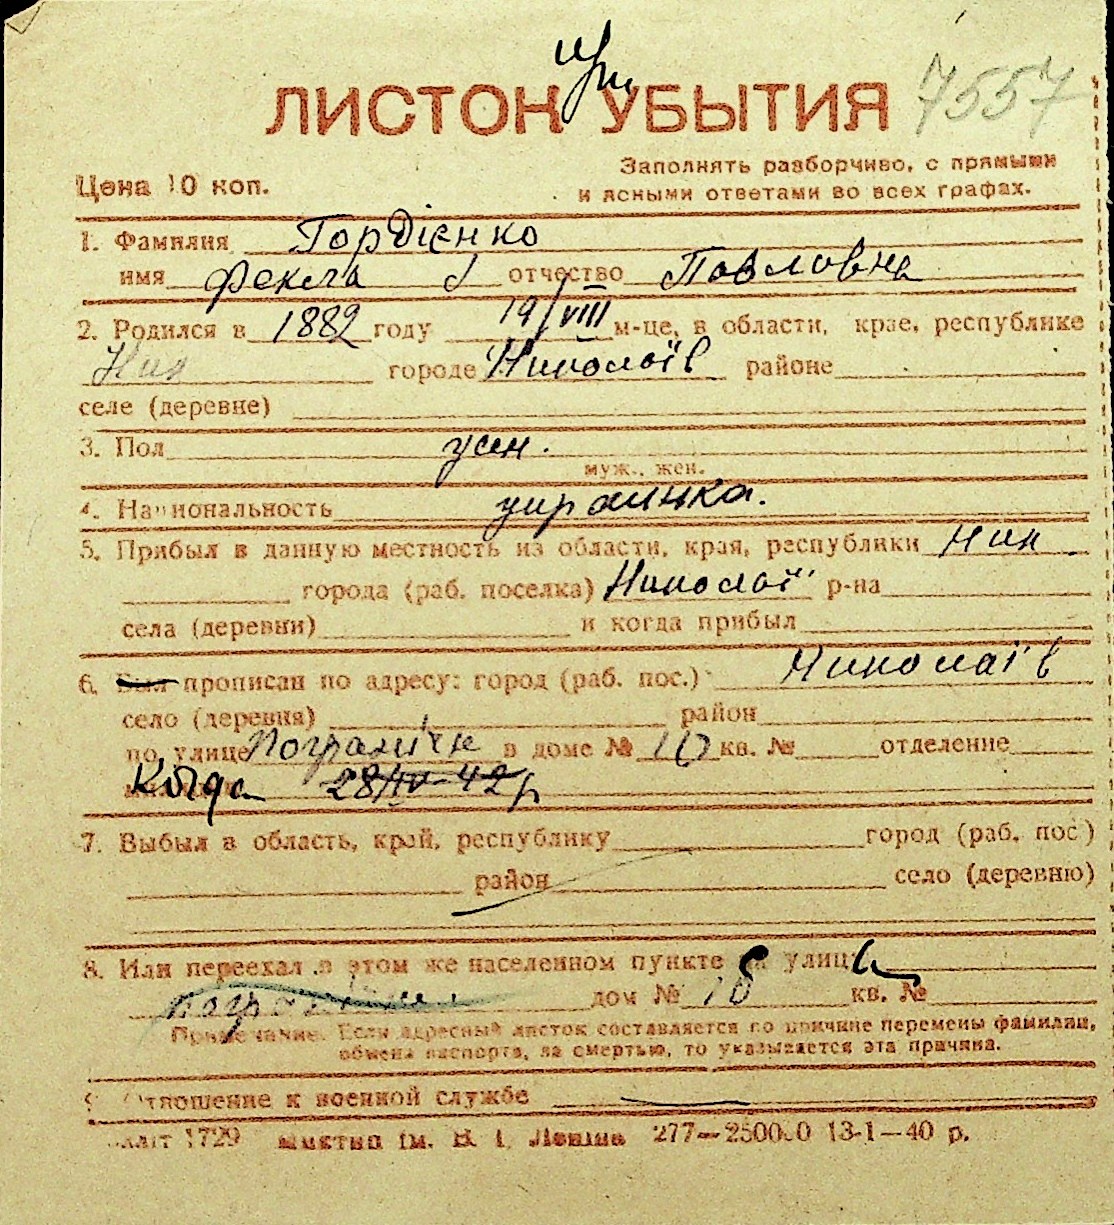 при
ЛИСТОК УБЫТИЯ 7557
Заполнять разборчиво, с прямыми
Цена 10 коп. и ясными ответами во всех графах.
1. Фамилия Гордієнко
имя Фекла отчество Павловна
2. Родился в 1882 году 19/VIII м-це, в области, крае, республике
Ник городе Николаїв районе
селе (деревне)
3. Пол жен.
муж., жен.
4. Национальность украинка.
5. Прибыл в данную местность из области, края, республики Ник
города (раб. поселка) Николаї р-на
села (деревни) и когда прибыл
6. Был прописан по адресу: город (раб. пос.) Николаїв
село (деревня) район
по улице Погранічн в доме № 10 кв. № отделение
Когда 28/IV-42р
7. Выбыл в область, край, республику город (раб. пос)
район село (деревню)
8. Или переехал в этом же населенном пункте на улицу
дом № кв. №
Примечание. Если адресный листок составляется по причине перемены фамилии,
обмена паспорта, за смертью, то указывается эта причина.
9. Отношение к военной службе
1729 им. В. І. Леніна 277—250000 13-1—40 р.